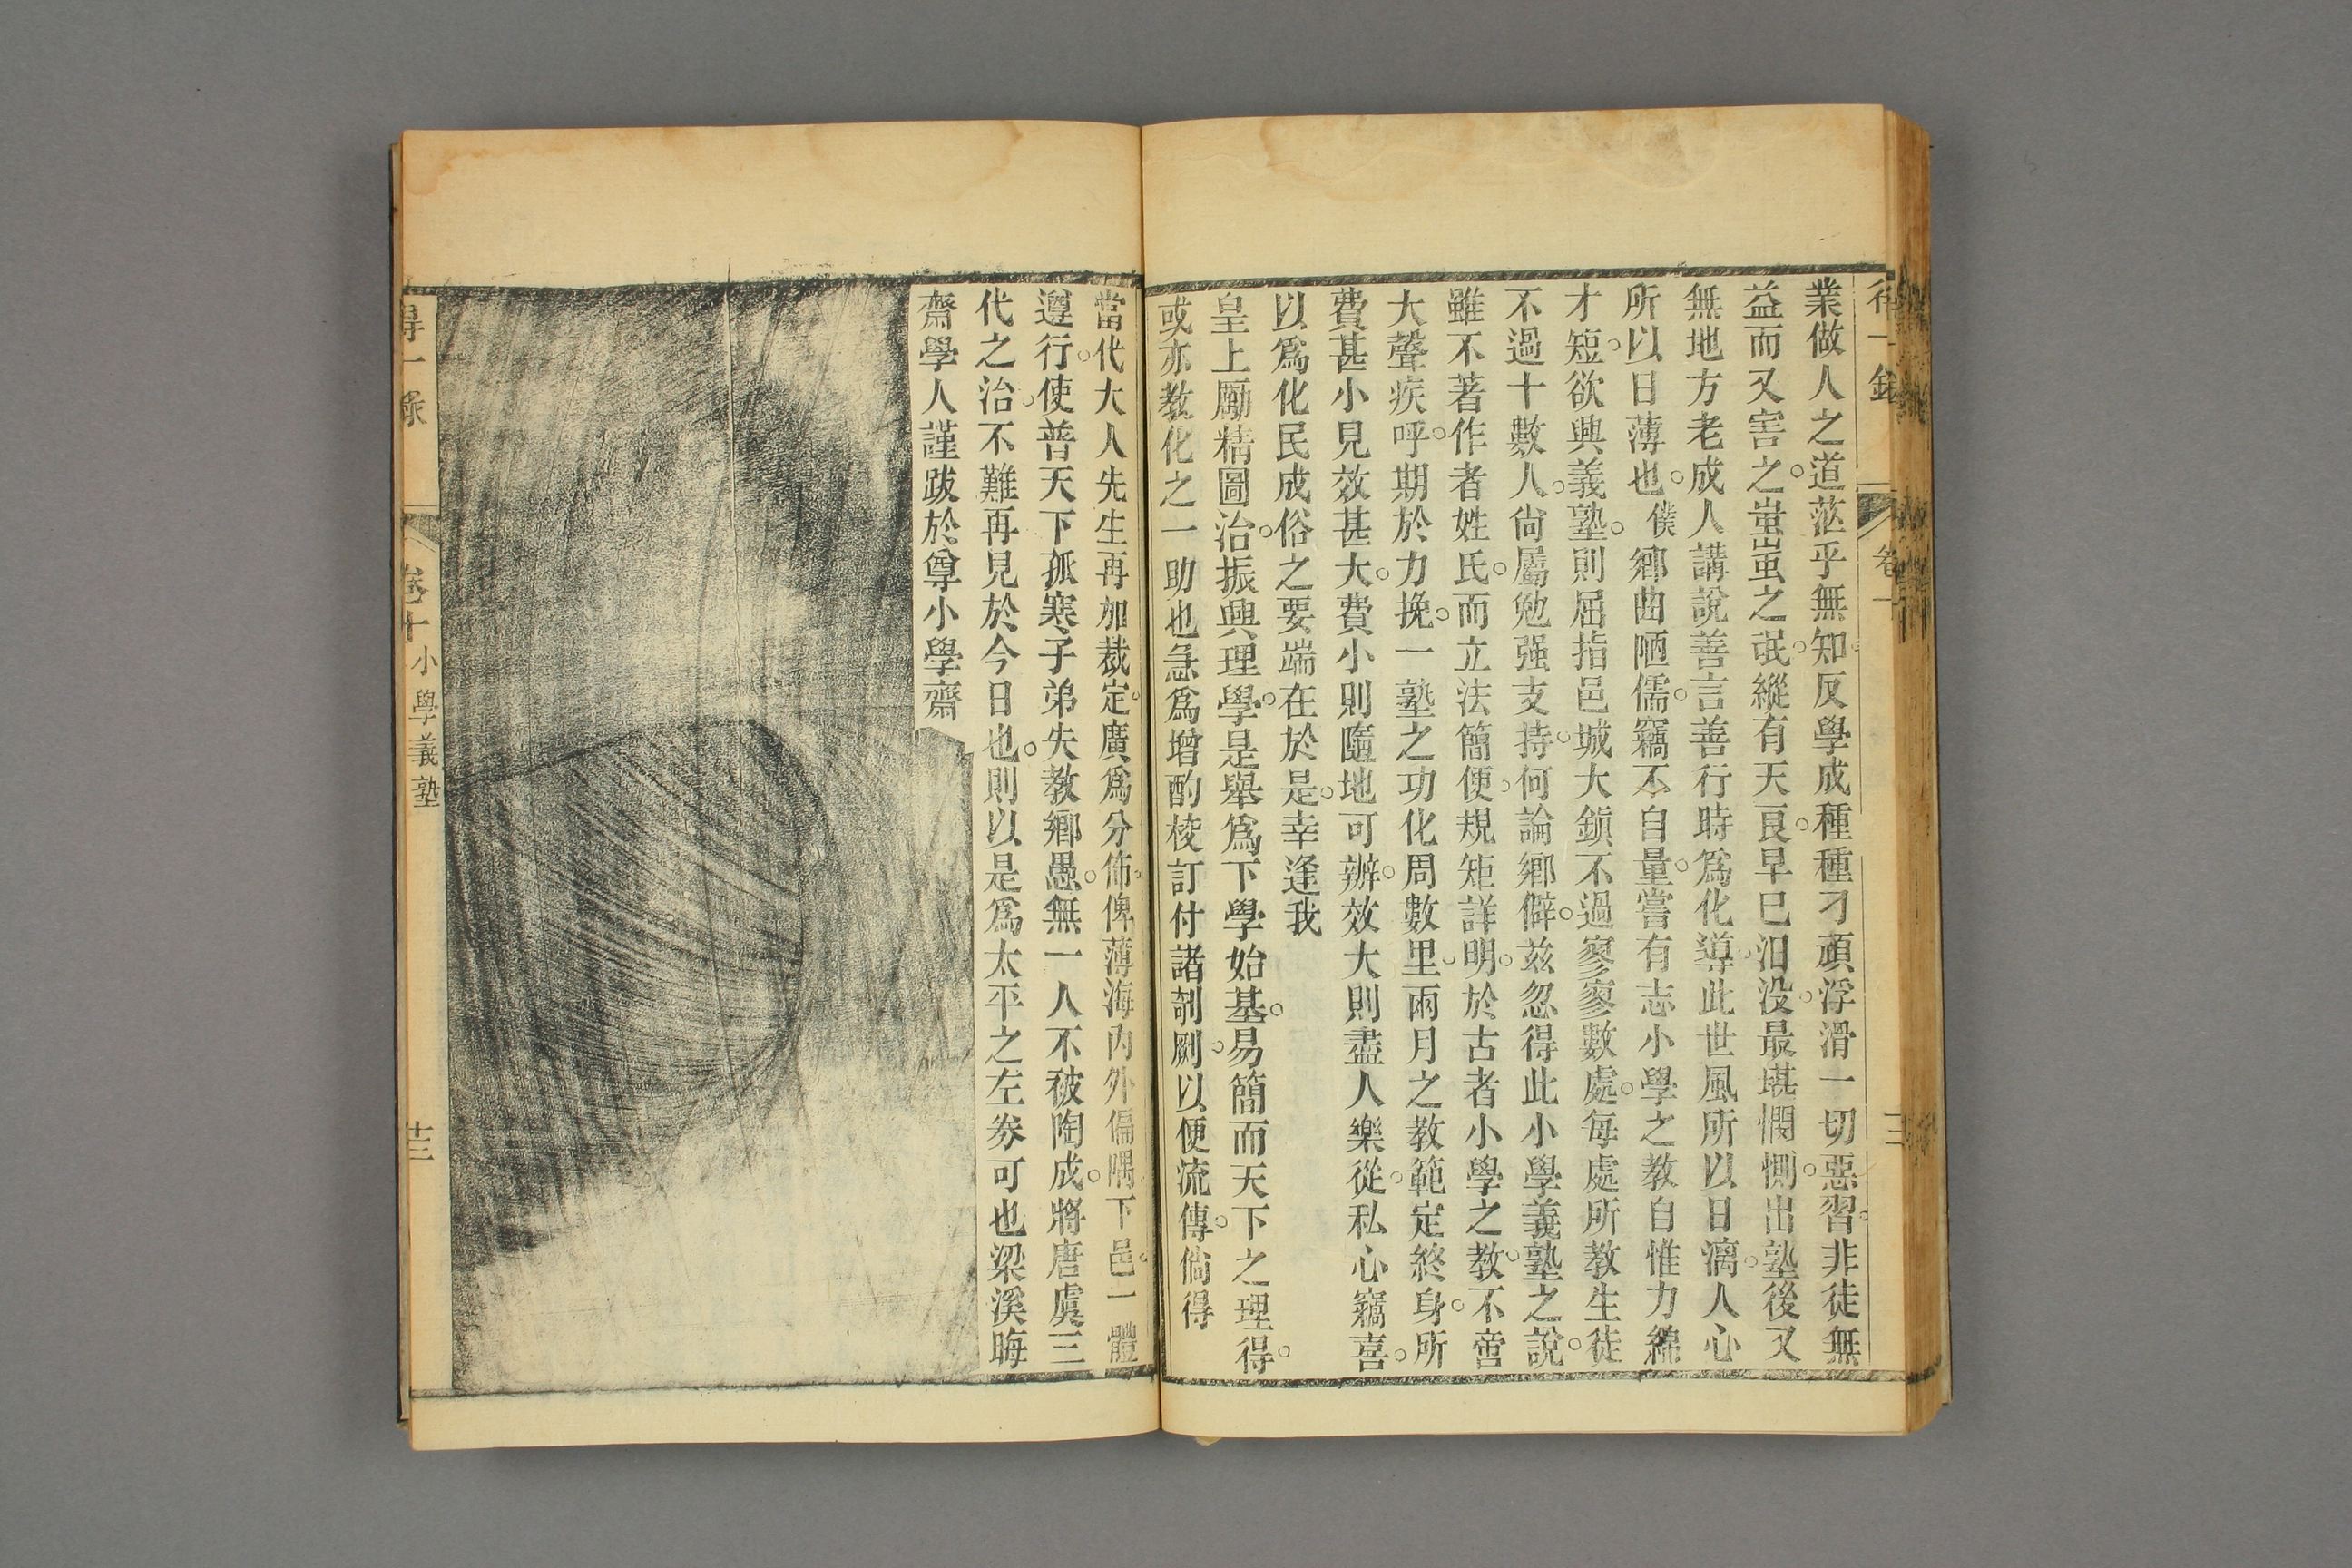 得一錄
卷十
業做人之道茫乎無知反學成種種刁頑浮滑一切惡習。非徒無
益而又害之。蚩蚩之氓。縱有天良。早已汨没。最堪憫惻。出塾後又
無地方老成人講說善言善行時爲化導。此世風所以日漓。人心
所以日薄也。僕鄉曲陋儒。竊不自量。嘗有志小學之教自惟力綿
才短。欲興義塾。則屈指邑城大鎭不過寥寥數處。每處所教生徒
不過十數人。尙屬勉强支持。何論鄉僻。茲忽得此小學義塾之說。
雖不著作者姓氏。而立法簡便。規矩詳明。於古者小學之教。不啻
大聲疾呼。期於力挽。一塾之功化周數里。兩月之教範定終身。所
費甚小見效甚大。費小則隨地可辦。效大則盡人樂從。私心竊喜。
以爲化民成俗之要端在於是。幸逢我
皇上勵精圖治。振興理學。是舉爲下學始基。易簡而天下之理得。
或亦教化之一助也急爲增酌校訂付諸剞劂。以便流傳。倘得
當代大人先生再加裁定。廣爲分佈。俾薄海內外偏隅下邑。一體
遵行。使普天下孤寒子弟失教鄉愚。無一人不被陶成。將唐虞三
代之治。不難再見於今日也。則以是爲太平之左券可也梁溪晦
齋學人謹跋於尊小學齋
得一錄
卷十
小學義塾
廿三